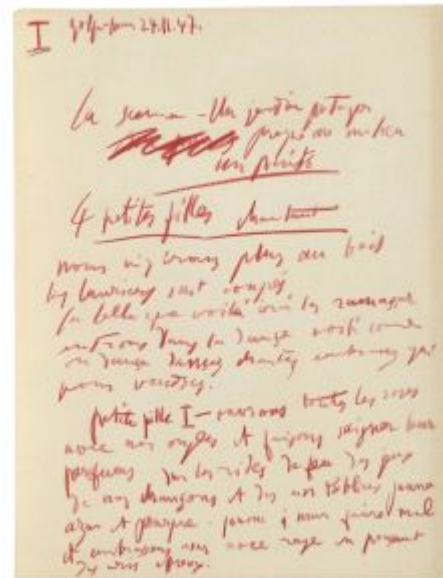 I golfe-juan 24.11.47.
la scene - Un jardin potager
presque au milieu
un puits
4 petites filles chantent
nous n'irons plus au bois
les lauriers sont coupés
la belle que voilà ira les ramasser
entrons dans la danse voilà comme
on danse dansez chantez embrassez qui
vous voudrez.
petite fille I - ouvrons toutes les roses
avec nos ongles et faisons saigner leurs
parfums sur les rides du feu des jeux
de nos chansons et de nos tabliers jaunes
azur et pourpre. jouons à nous faire mal
et embrassons nous avec rage en poussant
des cris affreux.